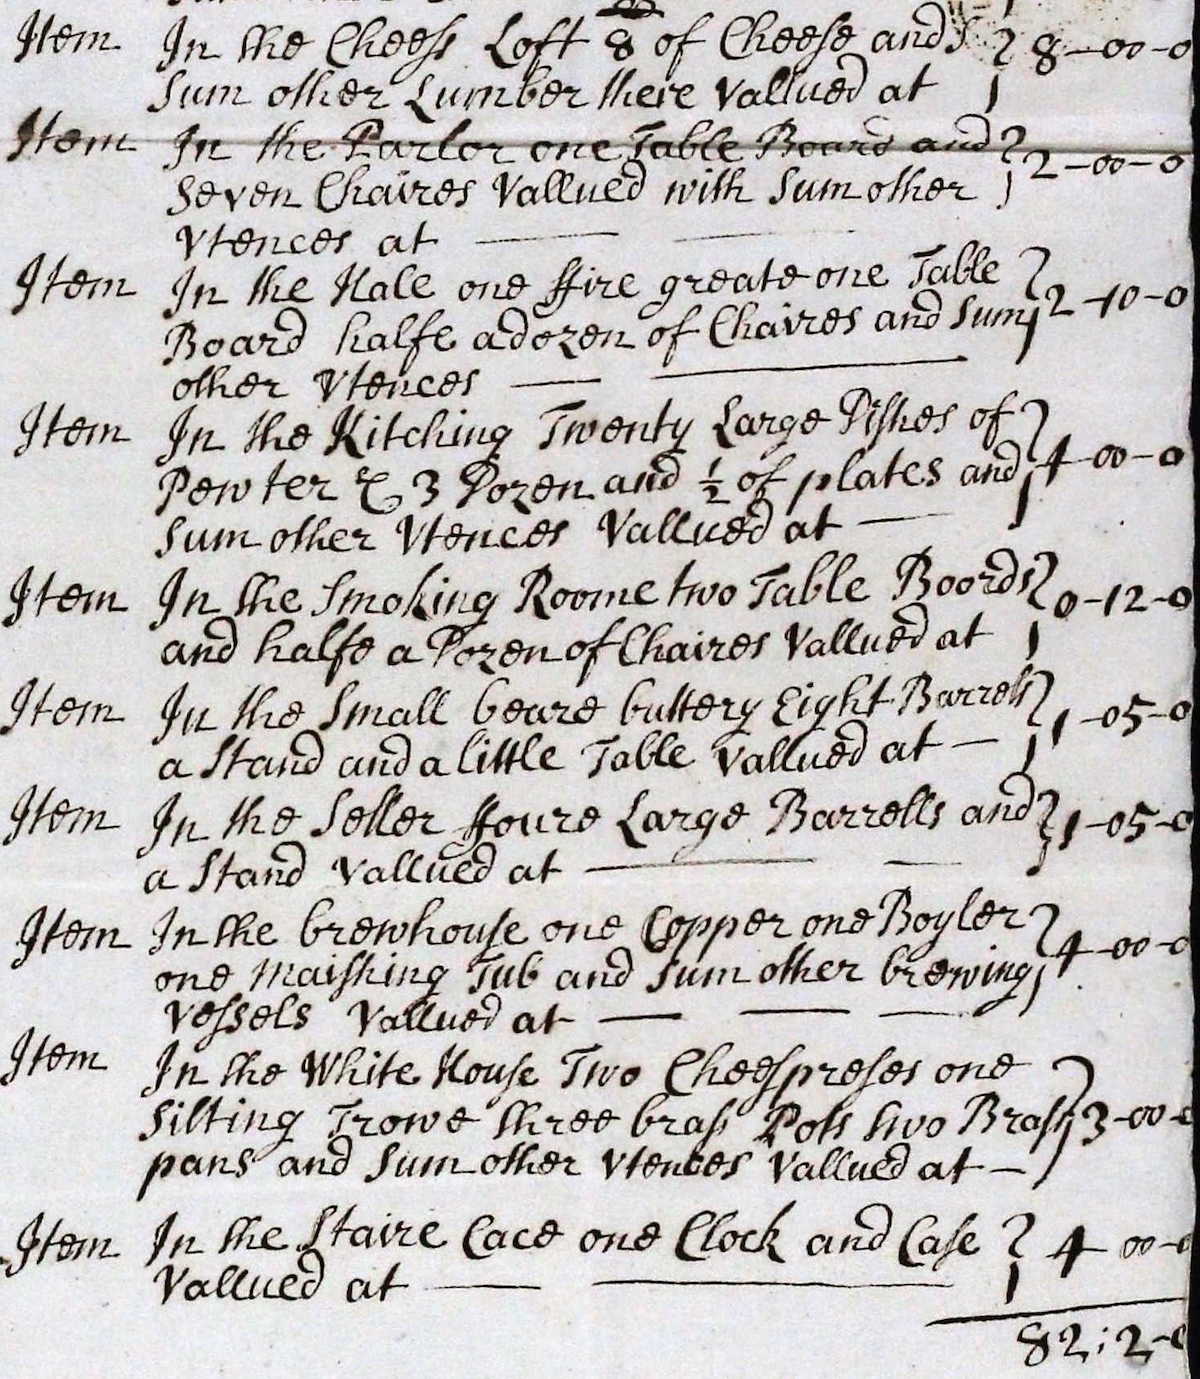 Item In the Cheess Loft 8 of Cheese and } 8-00-0
Sum other Lumber there Vallued at
Item In the Parlor one Table Board and } 2-00-0
Seven Chaires Vallued with Sum other
Vtences at
Item In the Hale one ffire greate one Table } 2-10-0
Board halfe a dozen of Chaires and Sum
other Vtences
Item In the Kitching Twenty Large Dishes of } 4-00-0
Pewter & 3 Dozen and ½ of plates and
Sum other Vtences Vallued at
Item In the Smoking Roome two Table Boords } 0-12-0
and halfe a Dozen of Chaires Vallued at
Item In the Small beare buttery Eight Barrells } 1-05-0
a Stand and a little Table Vallued at
Item In the Seller ffoure Large Barrells and } 1-05-0
a Stand Vallued at
Item In the brewhouse one Copper one Boyler } 4-00-0
one Maishing Tub and Sum other brewing
Vessels Vallued at
Item In the White House Two Cheespreses one } 3-00-0
Silting Trowe three brass Pots two Brass
pans and Sum other Vtences Vallued at
Item In the Staire Cace one Clock and Case } 4 00-0
Vallued at
82:2-0